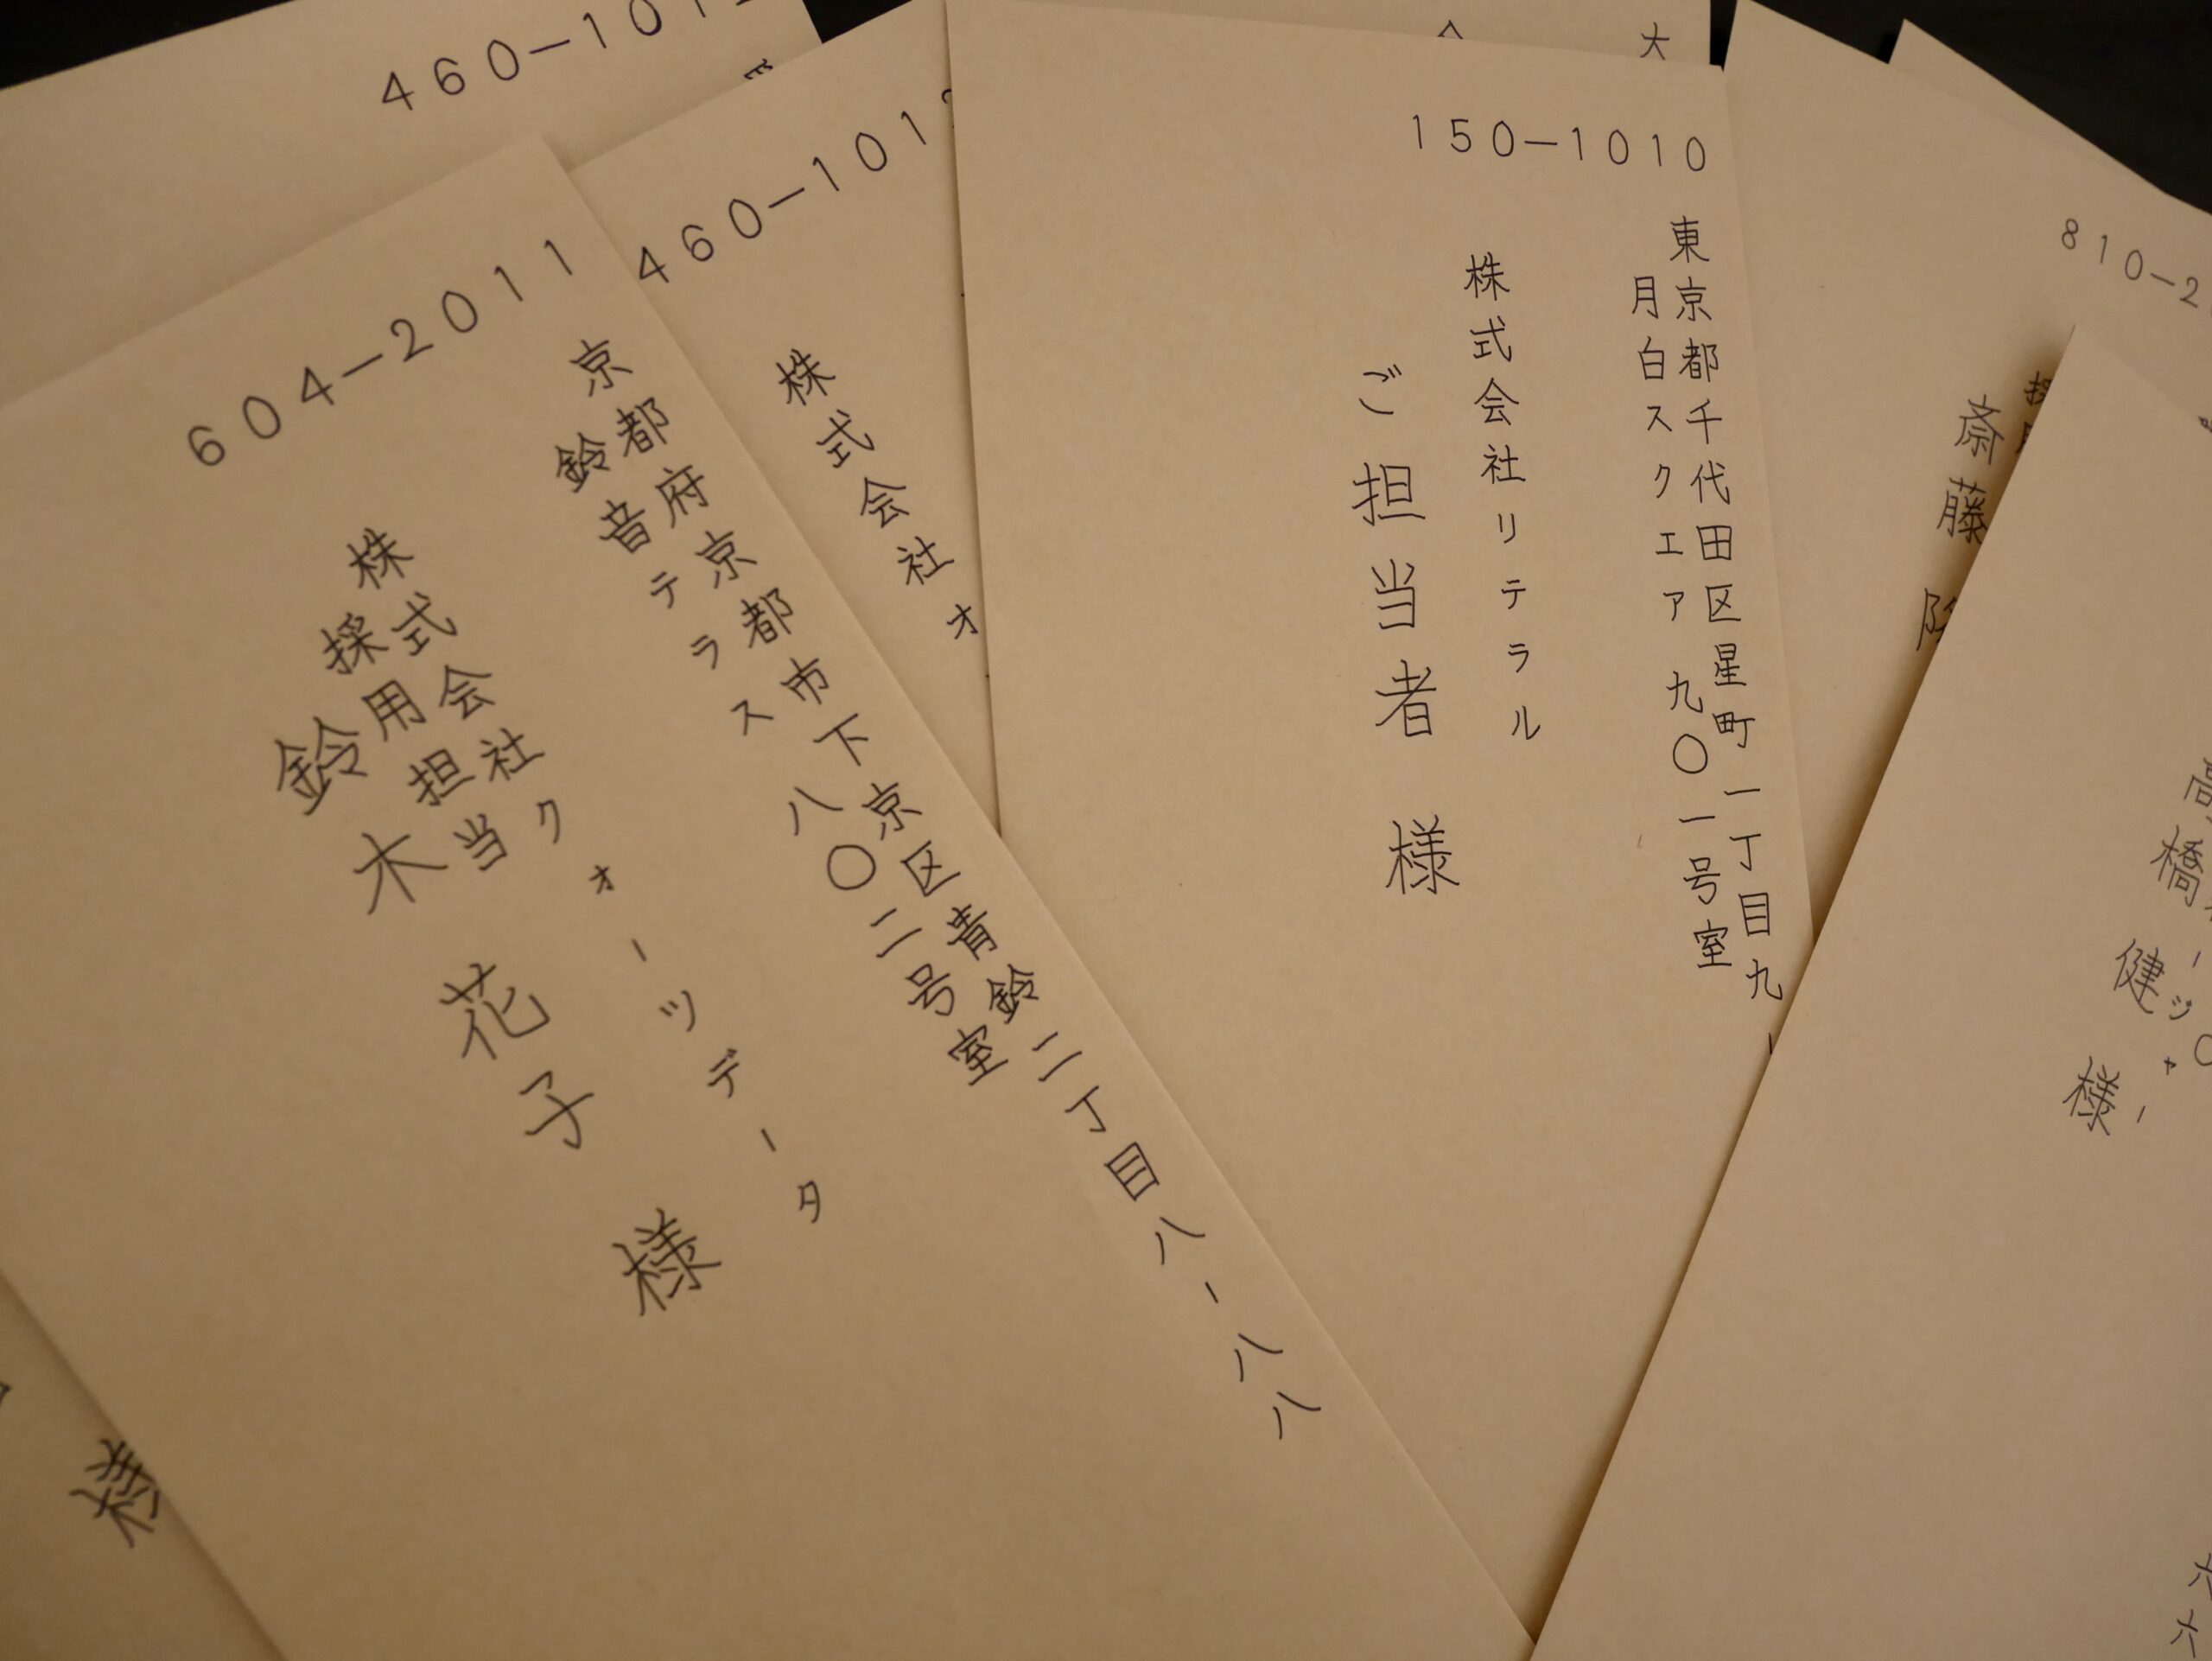 604-2011
京都府京都市下京区青鈴二丁目八-八八
鈴音テラス 八〇二号室
株式会社クォーツデータ
採用担当
鈴木 花子 様
460-101
460-101
株式会社オ
150-1010
東京都千代田区星町一丁目九
月白スクエア 九〇一号室
株式会社リテラル
ご担当者 様
大
810-2
斎藤
高橋 健 様
ジャー
六六
様